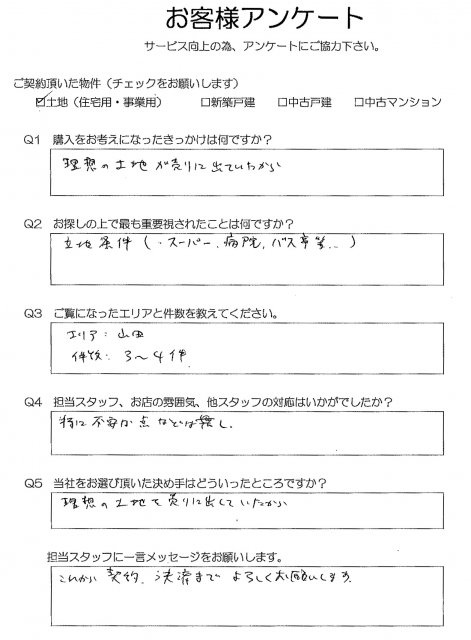 お客様アンケート
サービス向上の為、アンケートにご協力下さい。
ご契約頂いた物件（チェックをお願いします）
☑土地（住宅用・事業用） □新築戸建 □中古戸建 □中古マンション
Q1 購入をお考えになったきっかけは何ですか？
理想の土地が売りに出ていたから
Q2 お探しの上で最も重要視されたことは何ですか？
立地条件（・スーパー、病院、バス亭等…）
Q3 ご覧になったエリアと件数を教えてください。
エリア：山田
件数：3～4件
Q4 担当スタッフ、お店の雰囲気、他スタッフの対応はいかがでしたか？
特に不安な点などは無し.
Q5 当社をお選び頂いた決め手はどういったところですか？
理想の土地を売りに出していたから
担当スタッフに一言メッセージをお願いします。
これから契約、決済までよろしくお願いします